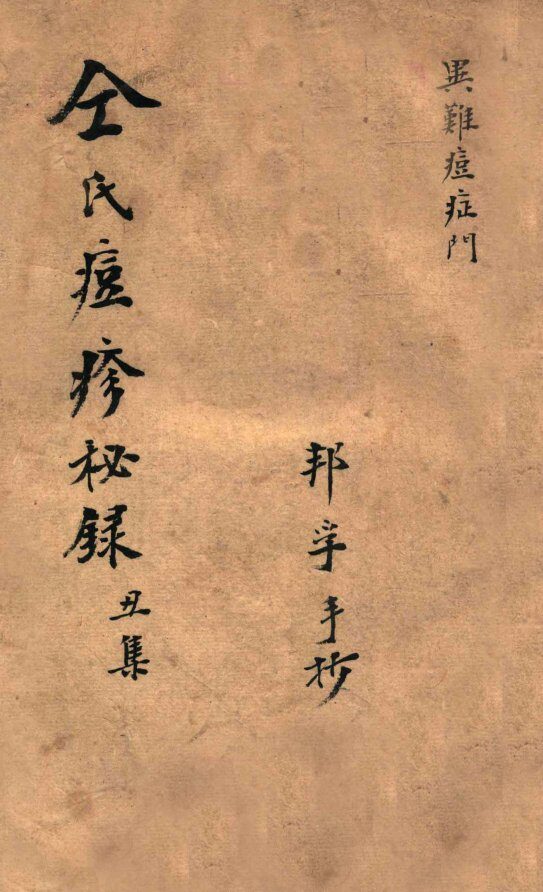 異難痘症門
邦孚手抄
仝氏痘疹秘録
丑集